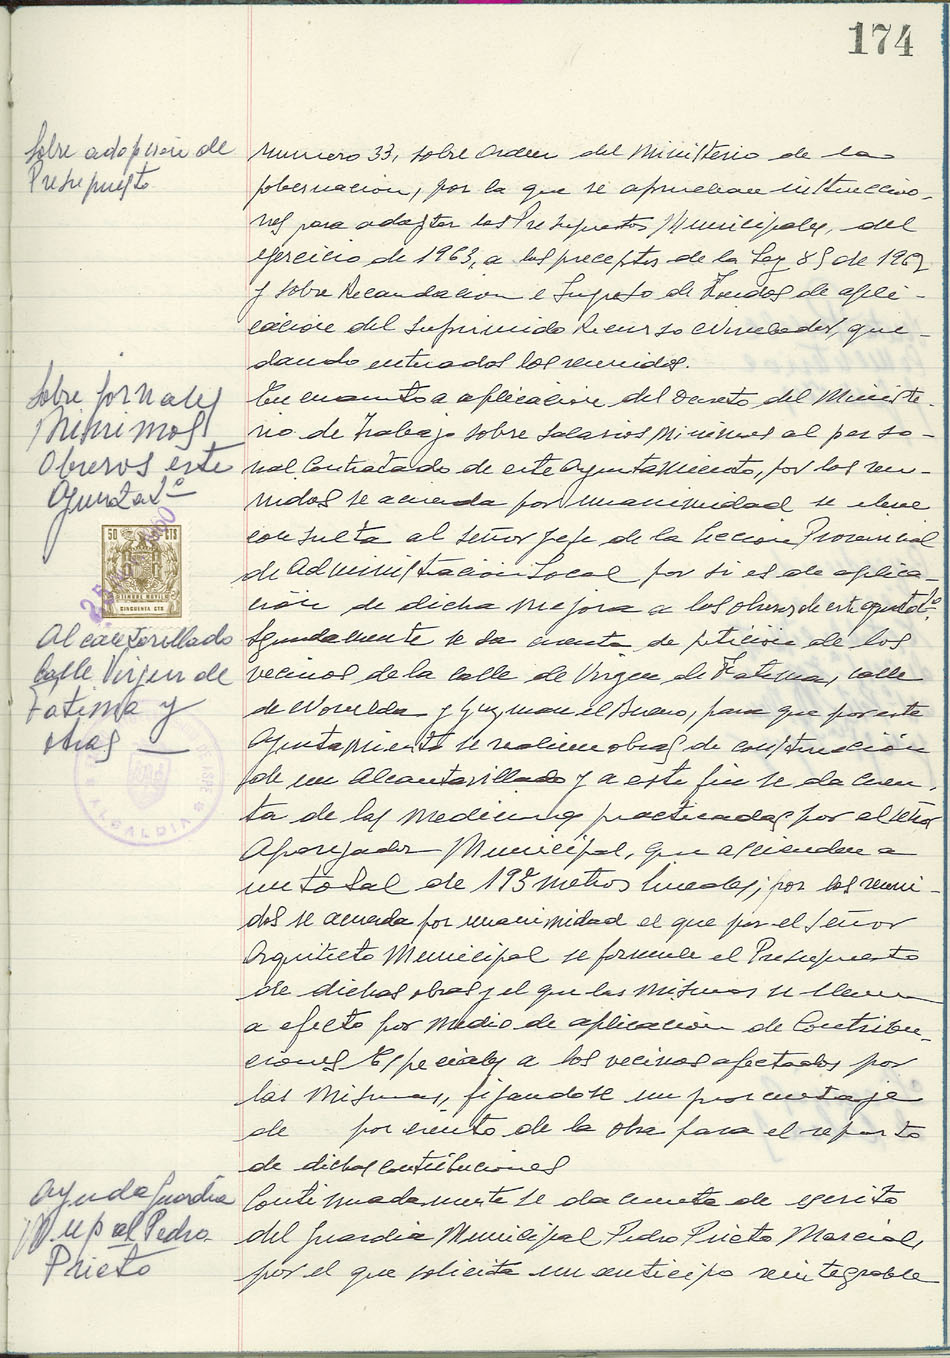 174
Sobre adopcion de
Presupuesto
numero 33, sobre Orden del Ministerio de la
gobernacion, por la que se aprueban instruccio-
nes para adapter los Presupuestos Municipales, del
ejercicio de 1963, a los preceptos de la Ley 85 de 1962
y sobre Recaudacion e Ingreso de Fondos de apli-
cacion del suprimido Recurso Nivelador, que-
dando enterados los reunidos.
Sobre jornales
Minimos
Obreros este
Ayuntatº
En cuanto a aplicacion del Decreto del Ministe-
rio de Trabajo sobre Salarios Minimos al perso-
nal Contratado de este Ayuntamiento, por los reu-
nidos se acuerda por unanimidad se eleve
consulta al Señor Jefe de la Seccion Provincial
de Administracion Local por si es de aplica-
ción de dicha mejora a los obreros de este ayuntatº.
50 CTS
TIMBRE MOVIL
CINCUENTA CTS
Alcantarillado
Calle Virgen de
Fatima y
otras
Seguidamente se da cuenta de peticion de los
vecinos de la calle de Virgen de Fatima, calle
de Novelda y Guzman el Bueno, para que por este
Ayuntamiento se realicen obras de construcción
de un Alcantarillado y a este fin se da cuen-
ta de las mediciones practicadas por el señor
Aparejador Municipal, que ascienden a
un total de 195 metros lineales; por los reuni-
dos se acuerda por unanimidad el que por el Señor
Arquitecto Municipal se formule el Presupuesto
de dichas obras y el que las mismas se lleven
a efecto por medio de aplicacion de Contribu-
ciones Especiales a los vecinos afectados por
las mismas, fijandose un porcentaje
de por ciento de la obra para el reparto
de dichas contribuciones
ALCALDIA
ASPE
Ayuda Guardia
Mupal Pedro
Prieto
Continuadamente se da cuenta de escrito
del Guardia Municipal Pedro Prieto Marcial,
por el que solicita un anticipo reintegrable